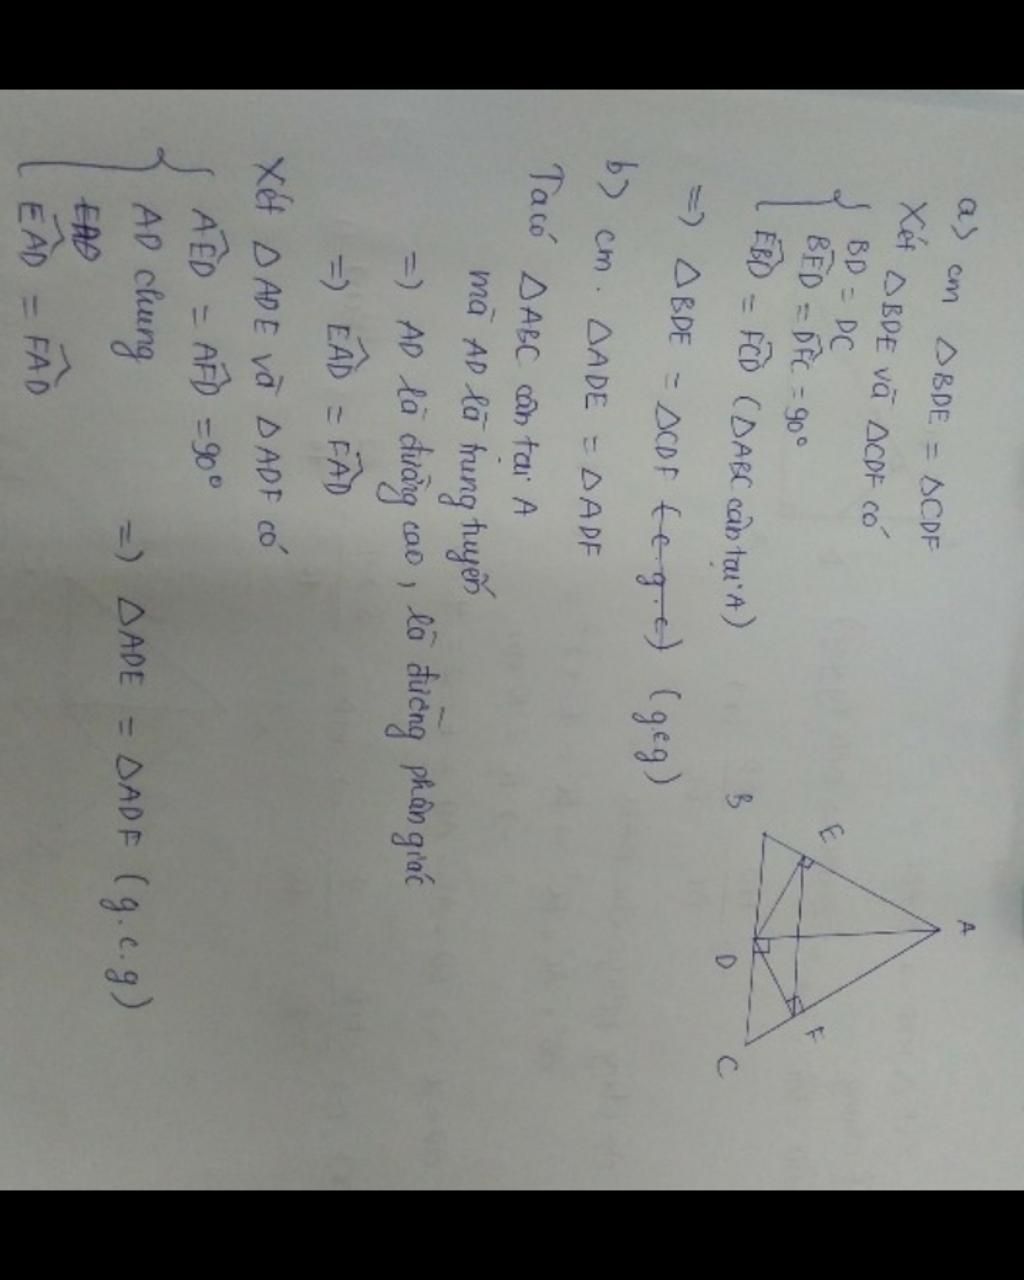 a) cm △BDE = △CDF
Xét △BDE và △CDF có
BD = DC
BED = DFC = 90°
EBD = FCD (△ABC cân tại A)
=) △BDE = △CDF (c.g.c) (gcg)
b) cm. △ADE = △ADF
Ta có △ABC cân tại A
mà AD là trung tuyến
=) AD là đường cao, là đường phân giác
=) EAD = FAD
Xét △ADE và △ADF có
AED = AFD = 90°
AD chung
EAD
EAD = FAD
=) △ADE = △ADF (g.c.g)
A
E
F
B
D
C